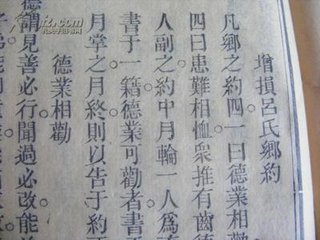 增損呂氏鄉約
凡鄉之約四一曰德業相
四曰患難相恤衆推有齒德
人副之約中月輪一人爲
書于一籍德業可勸者書于
月掌之月終則以告于約
德業相勸
德謂見善必行聞過必改能